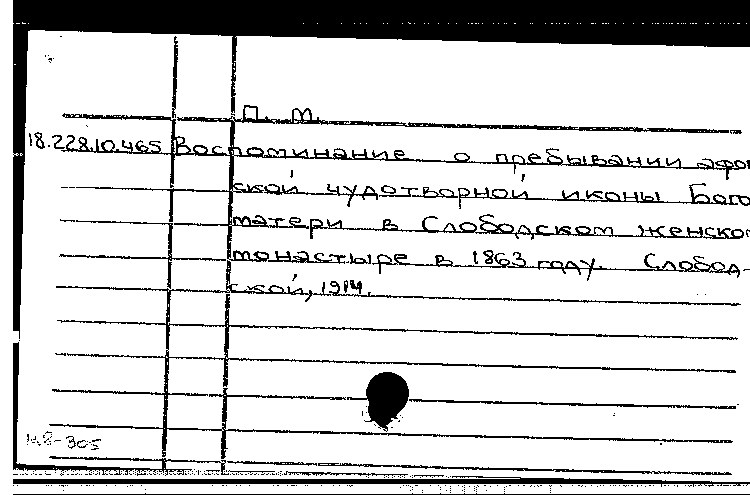 П. М.
18.228.10.465 Воспоминание о пребывании афон
ской чудотворной иконы Бого
матери в Слободском женском
монастыре в 1863 году. Слобод-
ской, 1914.
М8-305